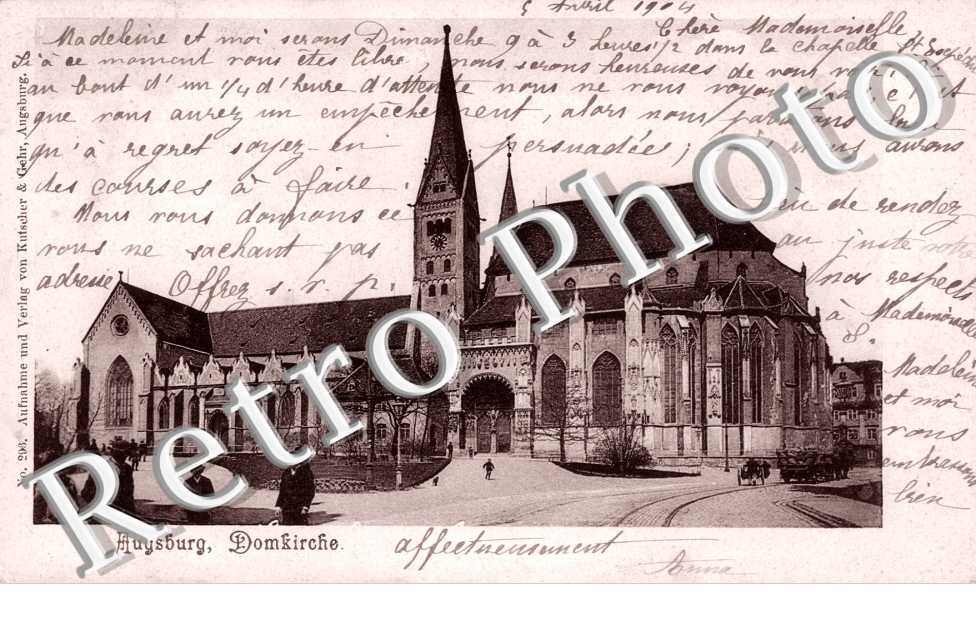 5 Avril 1904
Chère Mademoiselle
Madeleine et moi serons Dimanche 9 à 3 heures 1/2 dans la chapelle St
Si à ce moment vous êtes libre, nous serons heureuses de vous
au bout d'un 1/4 d'heure d'attente nous ne vous
que vous aurez un empêchement, alors nous
qu'à regret soyez-en persuadée; nous aurons
des courses à faire.
Nous vous donnons ce de rendez
vous ne sachant pas au juste votre
adresse Offrez s. v. p. nos respects
à Mademoiselle
S.
Madeleine
et moi
vous
embrassons
bien
affectueusement
Anna
Augsburg, Domkirche.
No. 206. Aufnahme und Verlag von Kutscher & Gehr, Augsburg.
Retro Photo